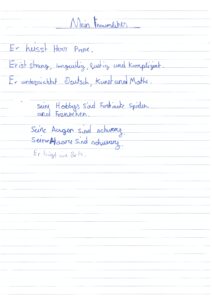 Mein Traumlehrer
Er heisst Herr Prone.
Er ist streng, langweilig, lustig und kompliziert.
Er unterrichtet Deutsch, Kunst und Mathe.
Seine Hobbys sind Football spielen
und Fernsehen.
Seine Augen sind schwarz.
Seine Haare sind schwarz.
Er